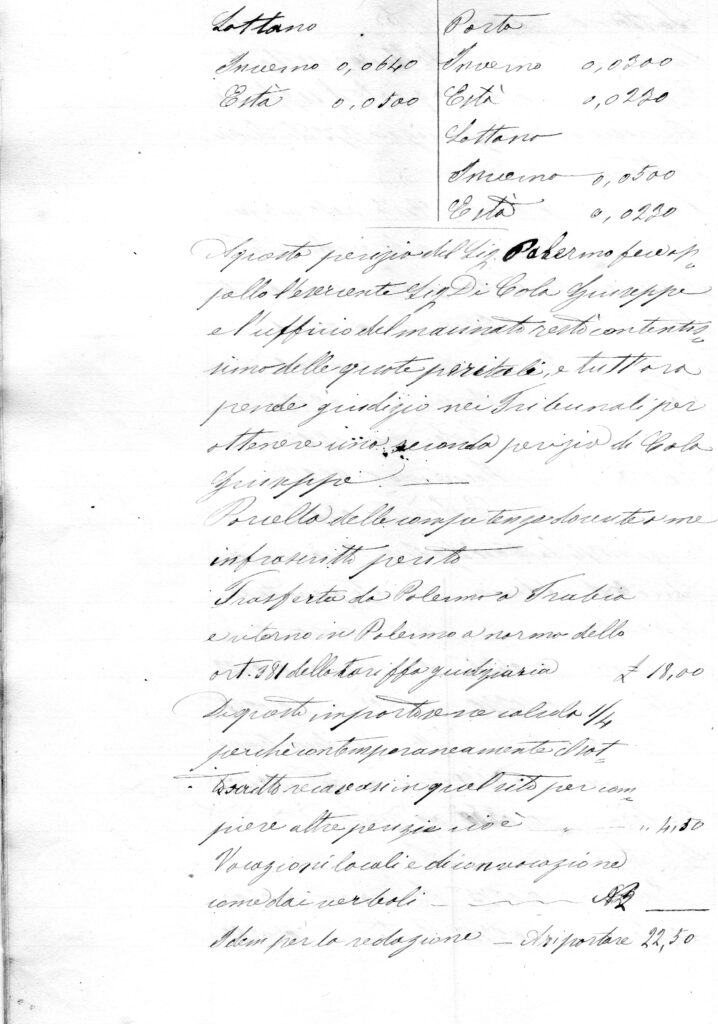 Lottano
Inverno 0,0640
Està 0,0500
Porta
Inverno 0,0300
Està 0,0230
Lottano
Inverno 0,0500
Està 0,0230
A questa perizia del Sig. Palermo fece ap-
pello l'esercente Sig. Di Cola Giuseppe
e l'ufficio del macinato restò contentis-
simo delle quote peritali, e tuttora
pende giudizio nei Tribunali per
ottenere una seconda perizia di Cola
Giuseppe —
Parcella delle competenze dovute a me
infrascritto perito
Trasferta da Palermo a Trabia
e ritorno in Palermo a norma della
art. 381 della tariffa giudiziaria £ 18,00
Di questo importo se ne calcola 1/4
perchè contemporaneamente il sot-
toscritto recavasi in quel sito per com-
piere altre perizie cioè " — " 4,50
Vacazioni locali e di convocazione
come dai verbali — N 2 —
Idem per la redazione — A riportare 22,50